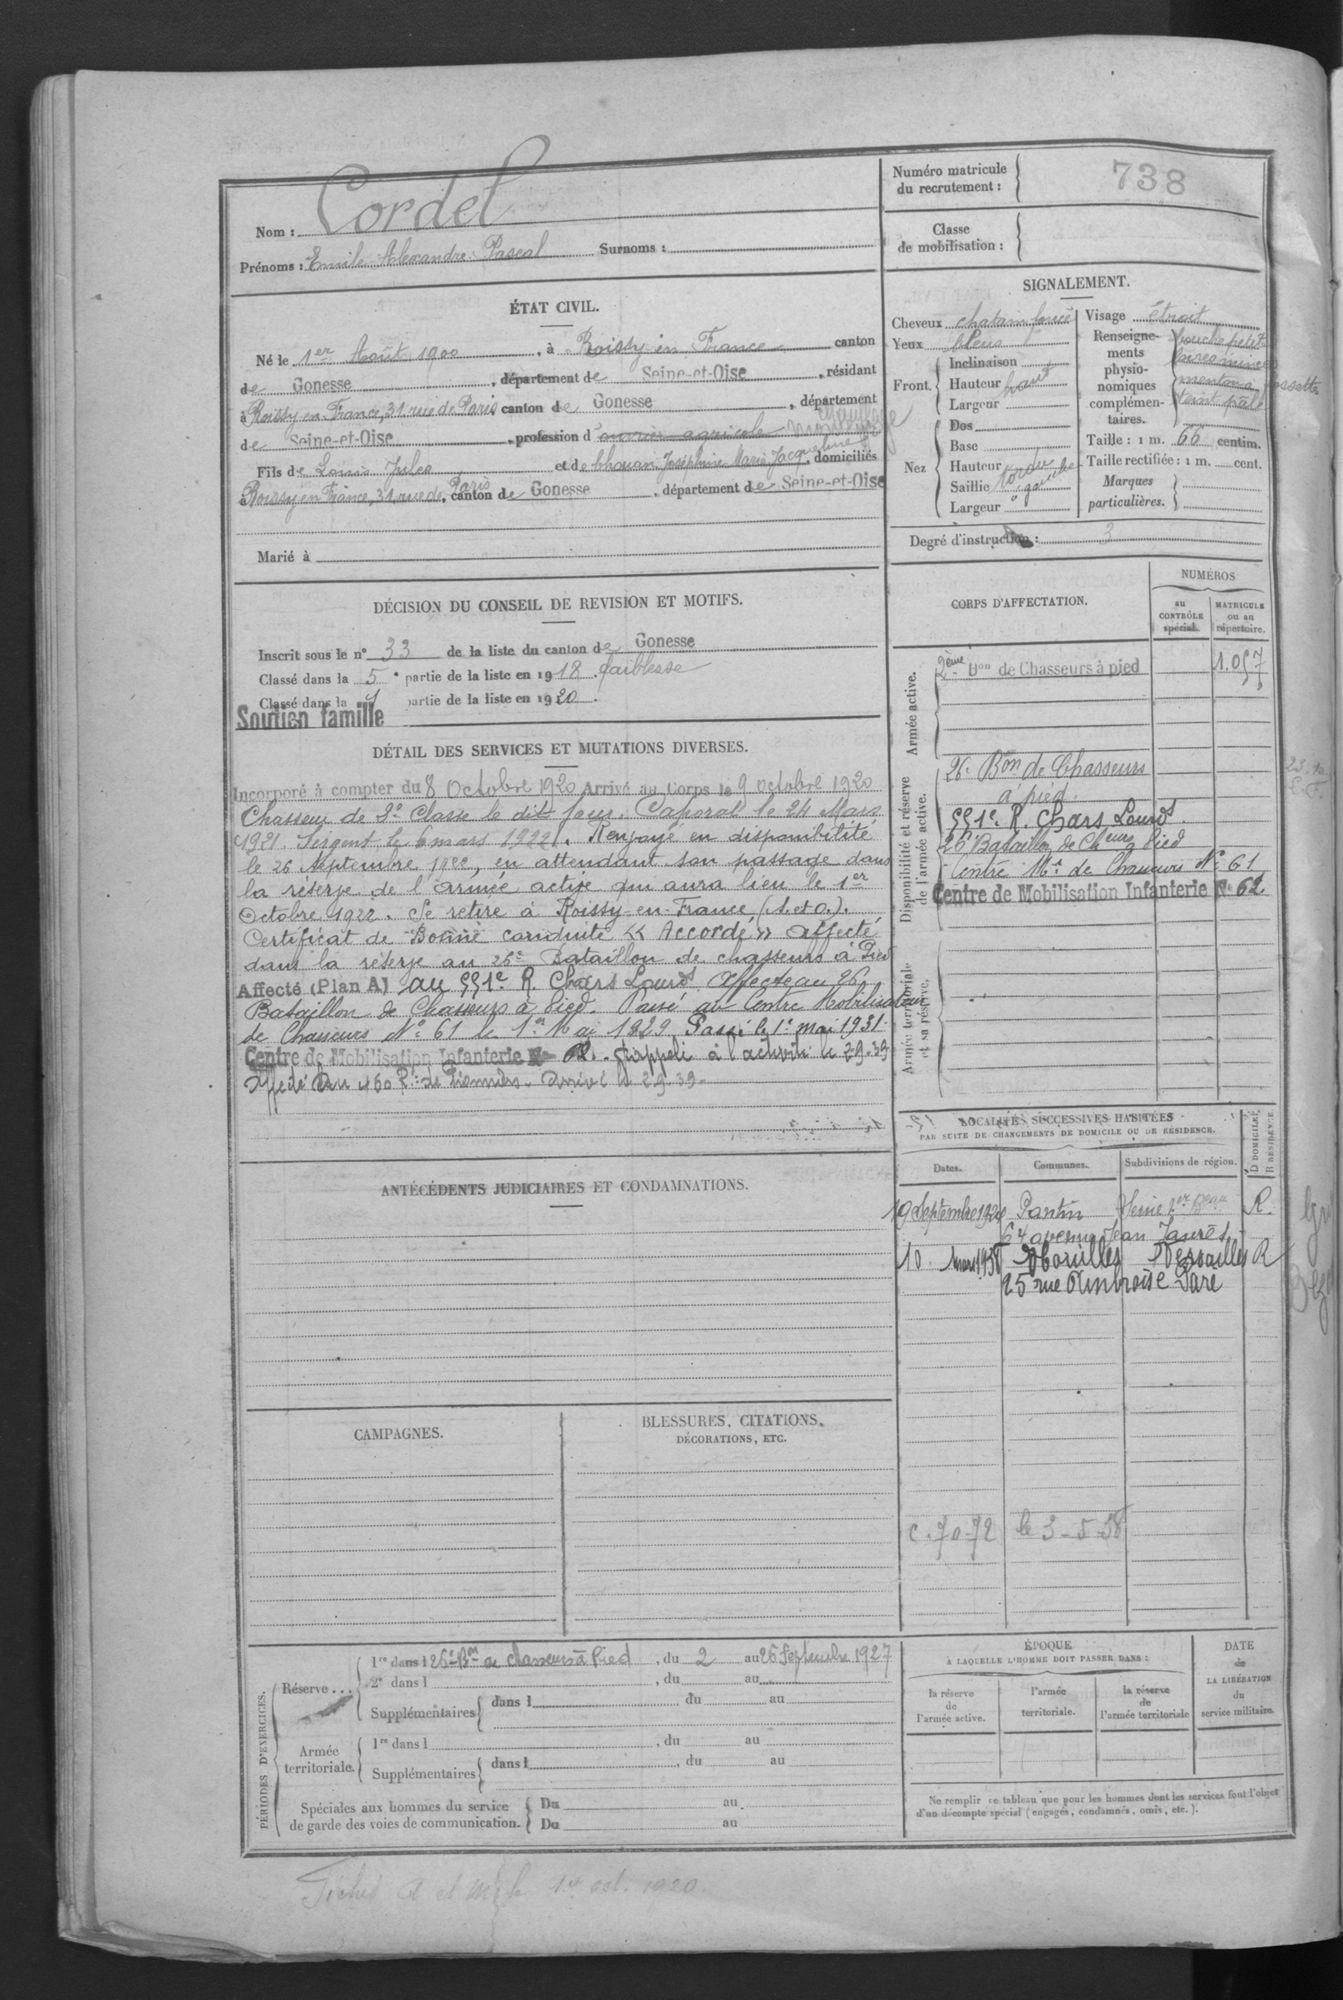 Nom : Cordel
Prénoms : Emile Alexandre Pascal Surnoms :
ÉTAT CIVIL.
Né le 1er Août 1900, à Roissy en France canton
de Gonesse, département de Seine-et-Oise, résidant
à Roissy-en-France, 31 rue de Paris canton de Gonesse, département
de Seine-et-Oise, profession d'ouvrier agricole
Fils de Louis Jules et de Chouan Joséphine Marie Jacqueline, domiciliés
à Roissy en France, 31, rue de Paris, canton de Gonesse, département de Seine-et-Oise
Marié à
DÉCISION DU CONSEIL DE REVISION ET MOTIFS.
Inscrit sous le n° 33 de la liste du canton de Gonesse
Classé dans la 5e partie de la liste en 1918. faiblesse
Classé dans la 1 partie de la liste en 1920.
Soutien famille
DÉTAIL DES SERVICES ET MUTATIONS DIVERSES.
Incorporé à compter du 8 Octobre 1920 Arrivé au Corps le 9 octobre 1920
Chasseur de 2e Classe le dit jour. Caporal le 24 Mars
1921. Sergent le 6 mars 1922. Renvoyé en disponibilité
le 26 septembre 1922, en attendant son passage dans
la réserve de l'armée active qui aura lieu le 1er
Octobre 1922. Se retire à Roissy-en-France (S. et O.).
Certificat de Bonne conduite « Accordé » affecté
dans la réserve au 26e Bataillon de chasseurs à Pied
Affecté (Plan A) au 551e R. Chars Lourds Affecté au 26
Bataillon de Chasseurs à Pied. Passé au Centre Mobilisateur
de Chasseurs N° 61 le 1er Mai 1929. Passé le 1er mai 1931
Centre de Mobilisation Infanterie N° 62. Rappelé à l'activité le 2-9-39
Affecté au 460 R. de Pionniers. Arrivé le 2-9-39.
ANTÉCÉDENTS JUDICIAIRES ET CONDAMNATIONS.
CAMPAGNES.
BLESSURES, CITATIONS,
DÉCORATIONS, ETC.
PÉRIODES D'EXERCICES.
Réserve... 1re dans l 26e Bon de Chasseurs à Pied, du 2 au 26 Septembre 1927
2e dans l , du au
Supplémentaires dans l , du au
Armée territoriale. 1re dans l , du au
Supplémentaires dans l , du au
Spéciales aux hommes du service
de garde des voies de communication.
Du au
Du au
Numéro matricule
du recrutement : 738
Classe
de mobilisation :
SIGNALEMENT.
Cheveux chatain foncé
Yeux bleus
Front. Inclinaison
Hauteur haut
Largeur
Nez Dos
Base
Hauteur tordu
Saillie à gauche
Largeur
Visage étroit
Renseignements
physionomiques
complémentaires.
bouche petite
lèvres minces
menton à fossette
teint pâle
Taille : 1 m. 66 centim.
Taille rectifiée : 1 m. cent.
Marques
particulières.
Degré d'instruction : 3
CORPS D'AFFECTATION.
NUMÉROS
au
CONTRÔLE
spécial.
MATRICULE
ou au
répertoire.
Armée active.
2ème Bon de Chasseurs à pied 1.057
Disponibilité et réserve
de l'armée active.
26e Bon de Chasseurs
à pied
551e R. Chars Lourds
26 Bataillon de Cheurs à Pied
Centre Mr de Chasseurs N° 61
Centre de Mobilisation Infanterie N° 62.
Armée territoriale
et sa réserve.
LOCALITÉS SUCCESSIVES HABITÉES
PAR SUITE DE CHANGEMENTS DE DOMICILE OU DE RÉSIDENCE.
Dates. Communes. Subdivisions de région. D DOMICILE. R RÉSIDENCE.
19 Septembre Pantin Seine 1er Beau R.
64 avenue Jean Jaurès
10 mars Houilles Versailles R
25 rue Ambroise Paré
C. 70-72 le 3-5-38
ÉPOQUE
À LAQUELLE L'HOMME DOIT PASSER DANS :
la réserve
de
l'armée active.
l'armée
territoriale.
la réserve
de
l'armée territoriale
DATE
de
LA LIBÉRATION
du
service militaire.
Ne remplir ce tableau que pour les hommes dont les services font l'objet
d'un décompte spécial (engagés, condamnés, omis, etc.).
oct. 1920